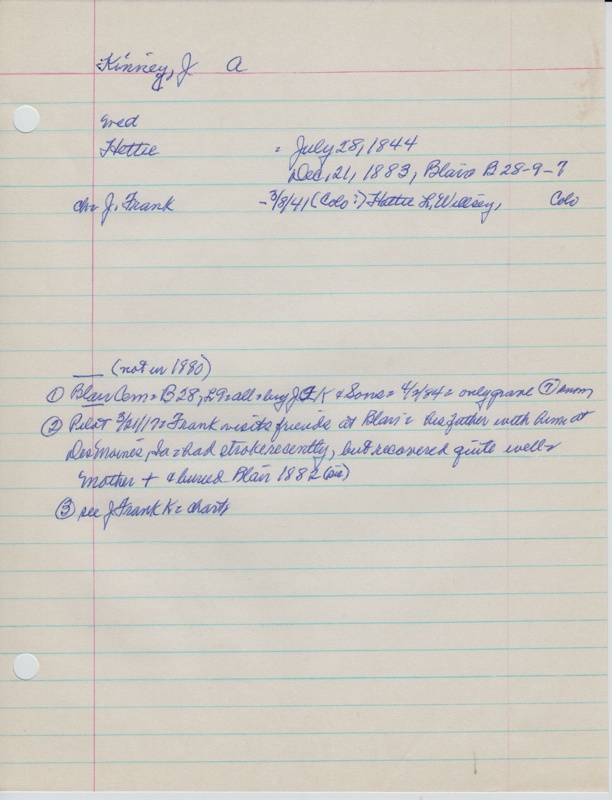 Kinney, J A
Wed
Hettie = July 28, 1844
Dec, 21, 1883, Blair B 28-9-7
ch= J. Frank - 3/8/41 (Colo:) Hattie L. Willsey, Colo
___ (not in 1880)
① Blair Cem= B28, L9= all= buy J K & Sons= 4/2/84= only grave ⑦
② Pilot 3/21/17= Frank visits friends at Blair= his father with him at
Des Moines, Ia= had stroke recently, but recovered quite well=
Mother + & buried Blair 1882 (sic)
③ see J Frank K= charts